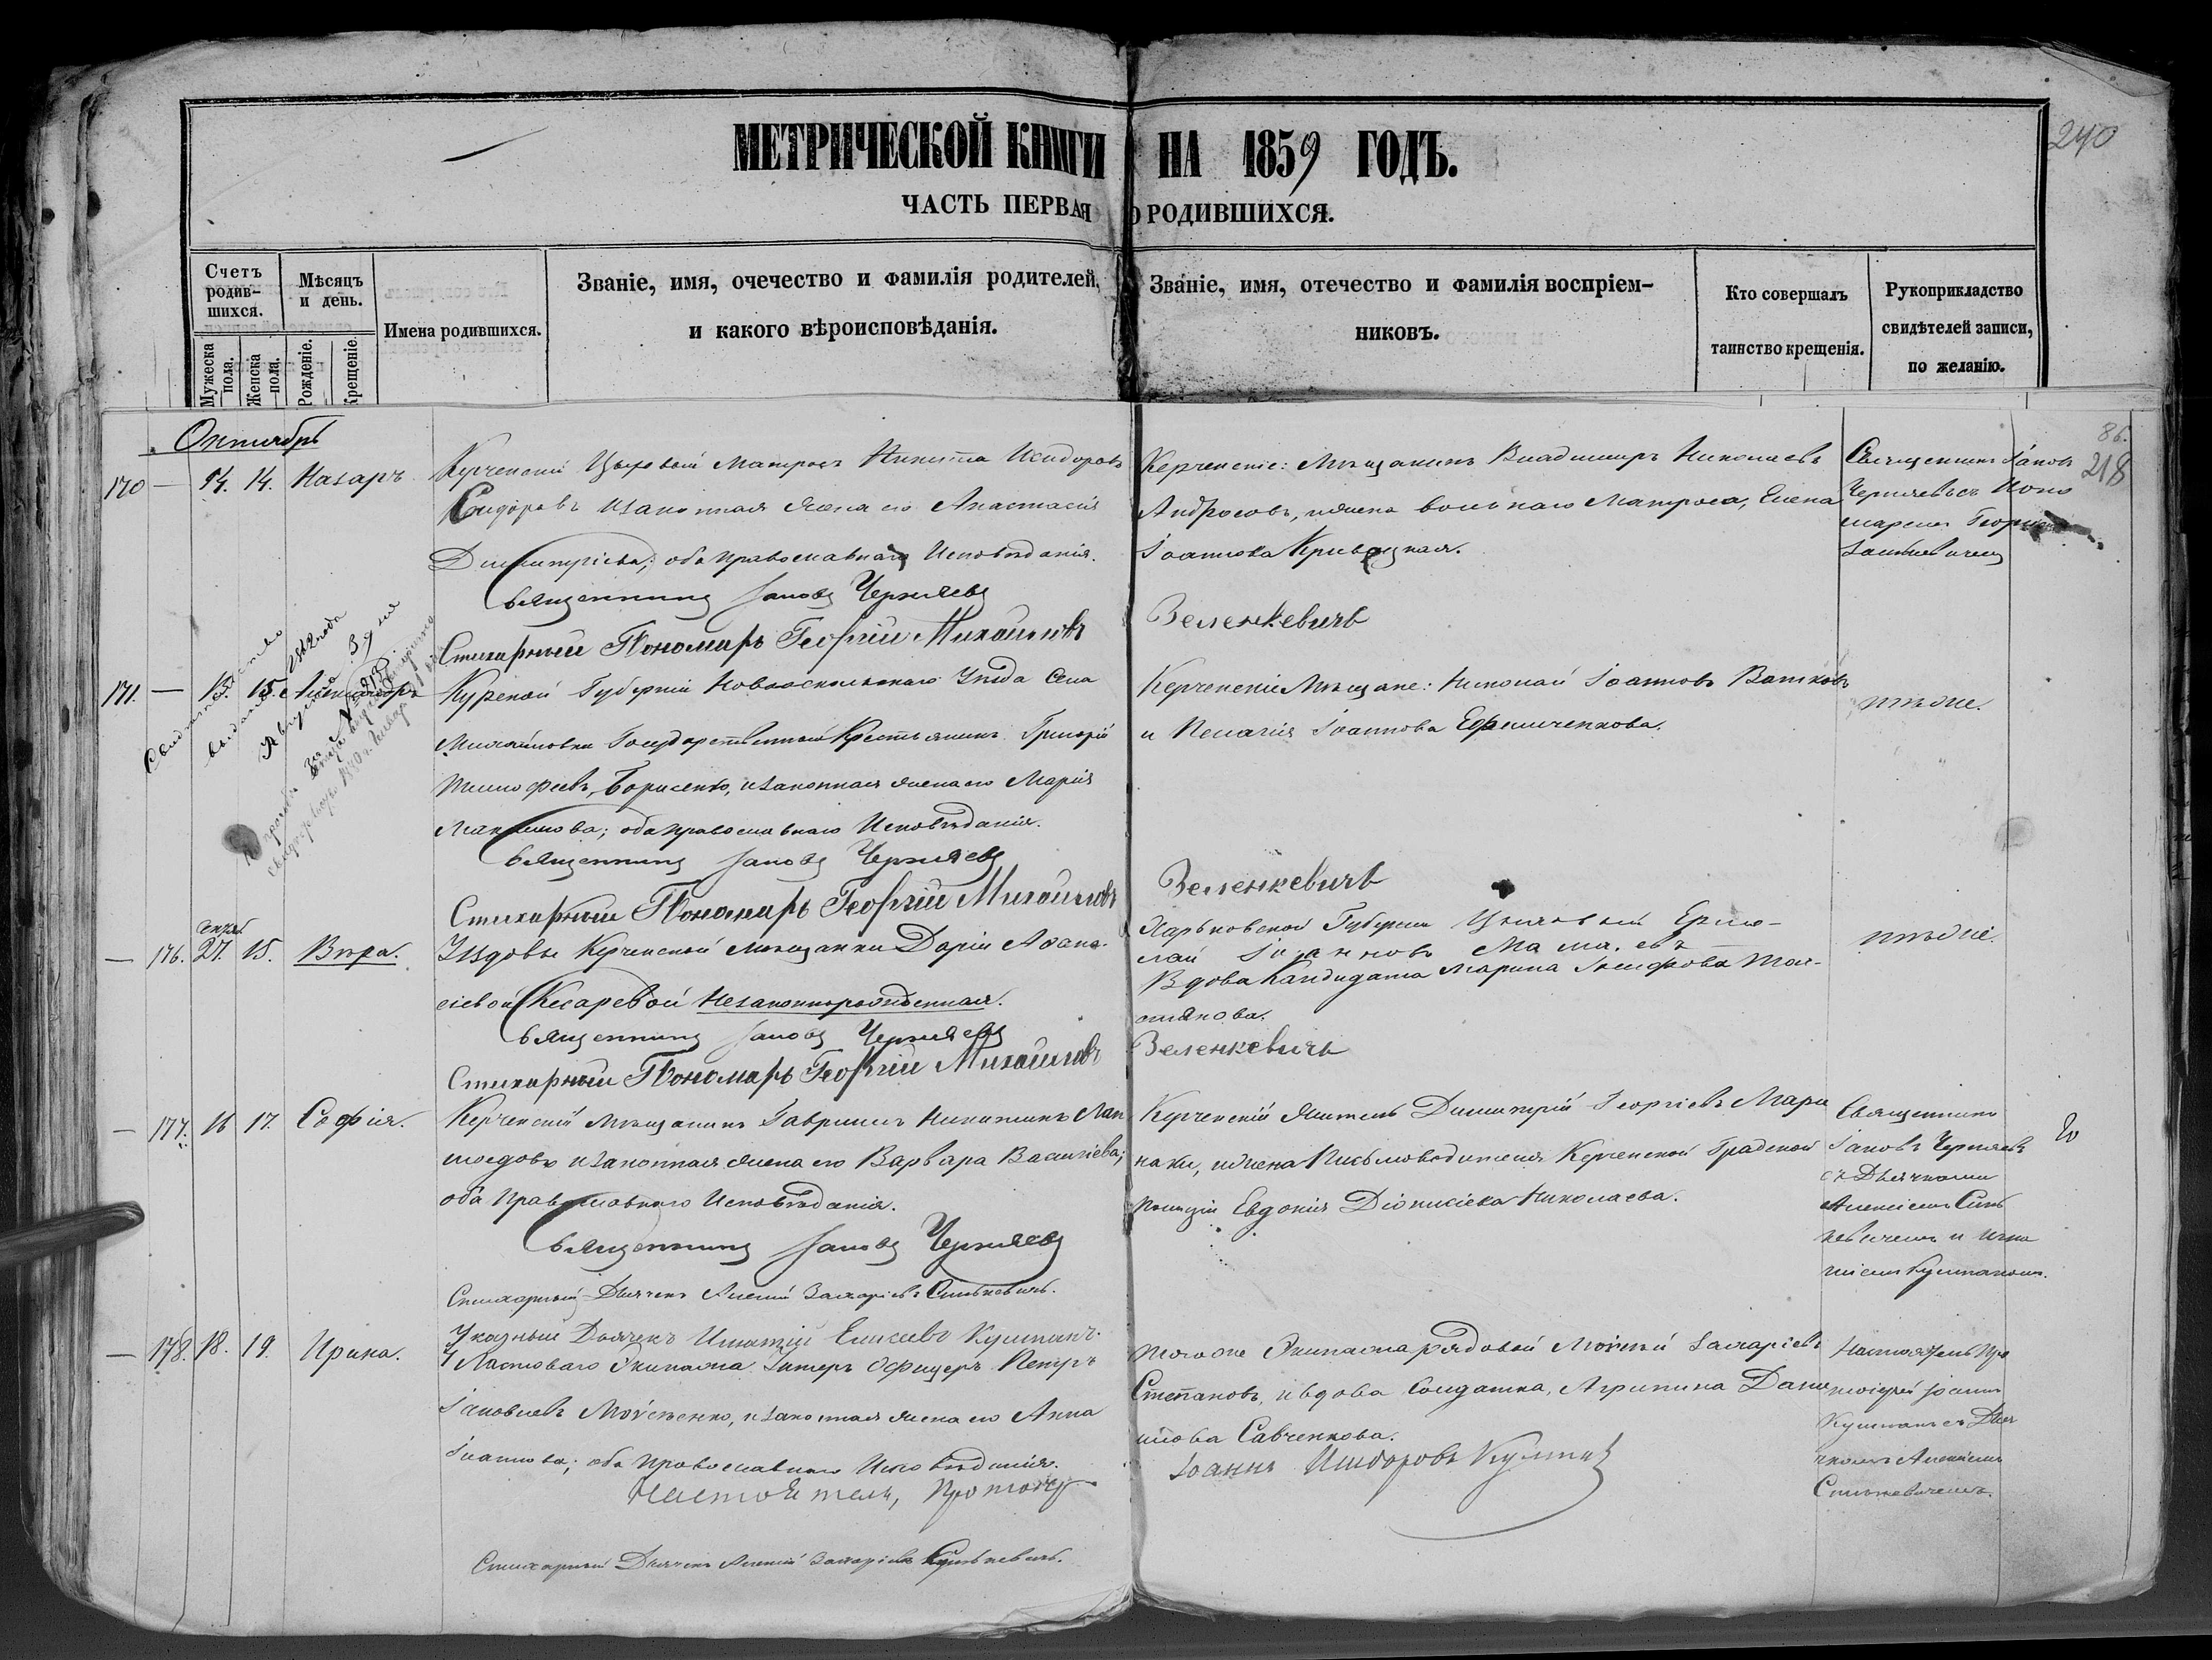 МЕТРИЧЕСКОЙ КНИГИ НА 1859 ГОДЪ.
240
ЧАСТЬ ПЕРВАЯ О РОДИВШИХСЯ.
Счетъ родив-шихся.
Мужеска пола.
Женска пола.
Мѣсяцъ и день.
Рожденіе.
Крещеніе.
Имена родившихся.
Званіе, имя, очечество и фамилія родителей,
и какого вѣроисповѣданія.
Званіе, имя, отечество и фамилія воспріем-
никовъ.
Кто совершалъ
таинство крещенія.
Рукоприкладство
свидѣтелей записи,
по желанію.
86.
218
Октябрь
170 — 14. 14. Назаръ.
Керченскій Цеховый Матросъ Никита Исидоровъ
Сидоровъ и законная жена его Анастасія
Димитріева; оба православнаго Исповѣданія.
Священникъ Іаковъ Черняевъ
Стихарный Пономарь Георгій Михайловъ
Керченскіе: Мѣщанинъ Владимиръ Николаевъ
Андросовъ, и жена вольнаго Матроса, Елена
Іоаннова
Зеленкевичъ
Священникъ Іаковъ
Черняевъ съ Поно
маремъ Георгіемъ
171. — 13. 15. Александръ
Курской Губерніи Новооскольскаго Уѣзда Села
Михайловки Государственный Крестьянинъ Григорій
Тимофеевъ, Борисенко, и законная жена его Марія
оба православнаго Исповѣданія.
Священникъ Іаковъ Черняевъ
Стихарный Пономарь Георгій Михайловъ
Керченскіе Мѣщане: Николай Іоанновъ
и Пелагія Іоаннова Ефимченкова.
Зеленкевичъ
тѣже.
— 176. 27. 15. Вѣра.
Вдовы Керченской мѣщанки Даріи Афана-
сіевой Кесаревой Незаконнорожденная.
Священникъ Іаковъ Черняевъ
Стихарный Пономарь Георгій Михайловъ
Харьковской Губерніи Ермо-
лай Іоанновъ
Вдова Кандидата Марина Іосифова
Зеленкевичъ
тѣже.
— 177. 16 17. Софія.
Керченскій Мѣщанинъ Гавріилъ Никитинъ
и законная жена его Варвара Василіева;
оба Православнаго Исповѣданія.
Священникъ Іаковъ Черняевъ
Стихарный Дьячекъ Алексій Захаріевъ Синькевичъ.
Указный Дьячекъ Игнатій Елисеевъ
Керченскій житель Димитрій Георгіевъ Мари
наки, и жена Письмоводителя Керченской Градской
Полиціи Евдокія Діонисіева Николаева.
Священникъ
Іаковъ Черняевъ
съ Дьячками
Алексіемъ Синь
кевичемъ и Игна
тіемъ
— 178. 18. 19. Ирина.
Ластоваго Экипажа Унтеръ Офицеръ Петръ
Іаковлевъ Моисеенко, и законная жена его Анна
Іоаннова; оба православнаго Исповѣданія.
Настоятель, Протоіер
Стихарный Дьячекъ Алексій Захаріевъ Синькевичъ.
Тогоже Экипажа рядовой Моисей Захаріевъ
Степановъ, и вдова Солдатка, Агрипина Дани
илова Савченкова.
Іоаннъ
Настоятель Про
тоіерей Іоаннъ
съ Дья
чкомъ Алексіемъ
Синькевичемъ.